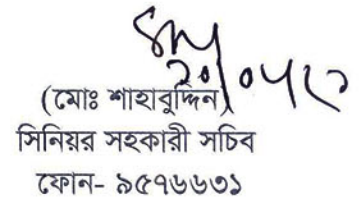 (মোঃ শাহাবুদ্দিন)
সিনিয়র সহকারী সচিব
ফোন- ৯৫৭৬৬৩১